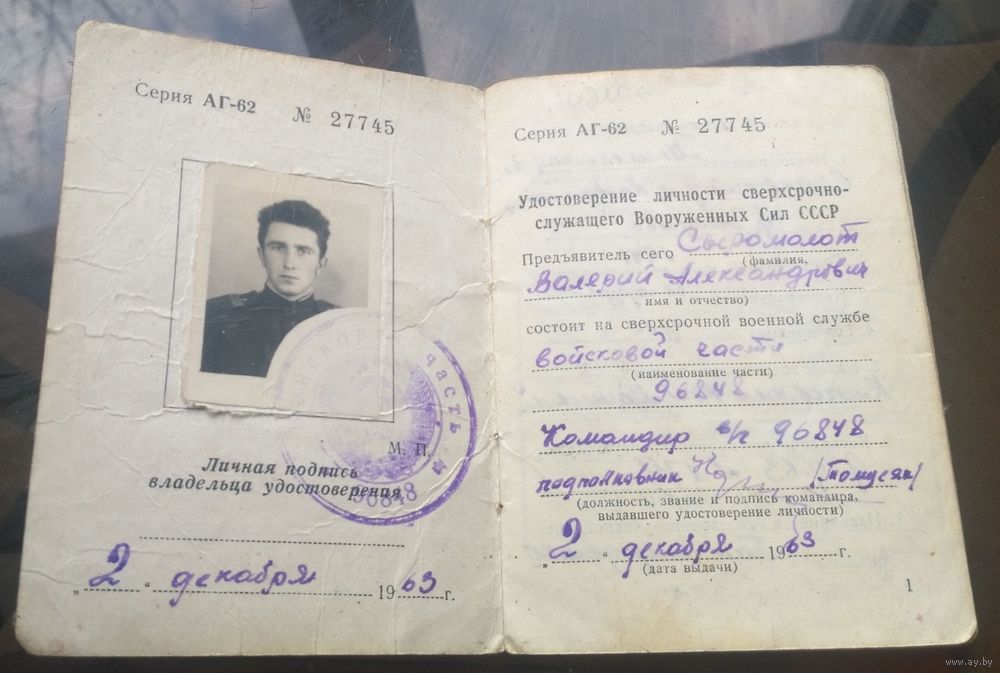 Серия АГ-62 № 27745
М. П.
Личная подпись
владельца удостоверения
часть
96848
„ 2 “ декабря 1963 г.
Серия АГ-62 № 27745
Удостоверение личности сверхсрочно-
служащего Вооруженных Сил СССР
Предъявитель сего Сыромолот
(фамилия,
Валерий Александрович
имя и отчество)
состоит на сверхсрочной военной службе
войсковой части
(наименование части)
96848
Командир в/ч 96848
подполковник (Томусяк)
(должность, звание и подпись командира,
выдавшего удостоверение личности)
„ 2 “ декабря 1963 г.
(дата выдачи)
1
www.ay.by